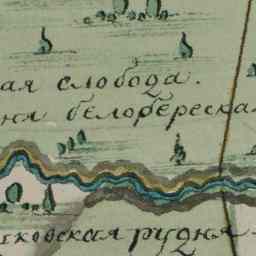 ая слобода.
ня белобереска
ековская рудня